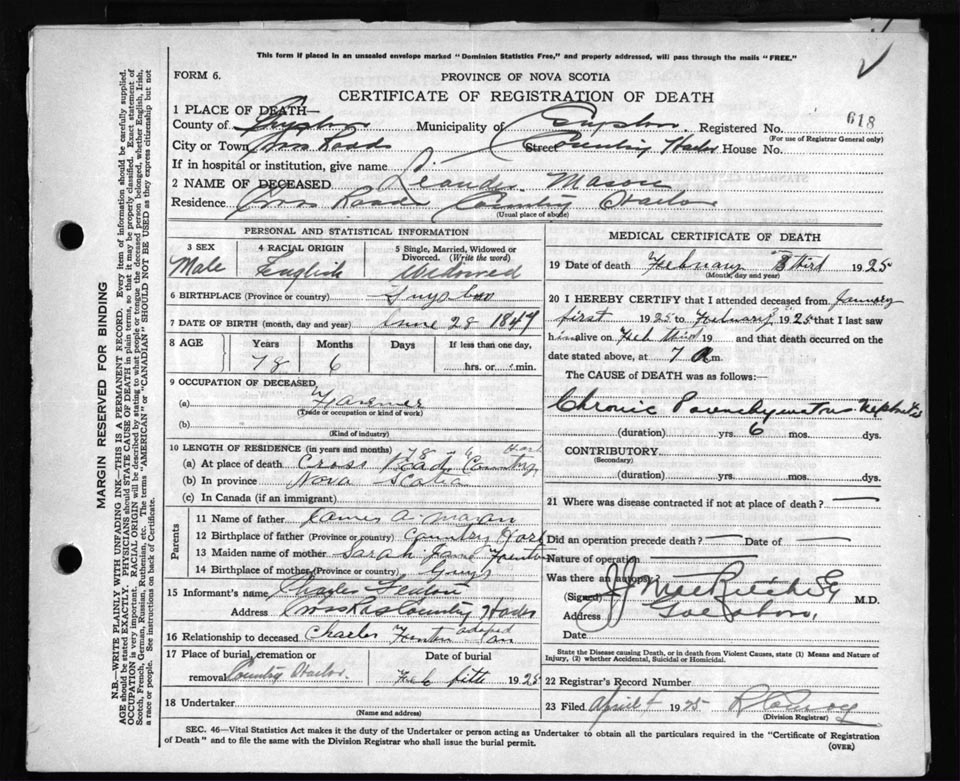 This form if placed in an unsealed envelope marked "Dominion Statistics Free," and properly addressed, will pass through the mails "FREE."
FORM 6.
PROVINCE OF NOVA SCOTIA
CERTIFICATE OF REGISTRATION OF DEATH
1 PLACE OF DEATH—
County of Municipality of Registered No. 618
(For use of Registrar General only)
City or Town Cross Roads Street Country Harbor House No.
If in hospital or institution, give name
2 NAME OF DECEASED Leander Mason
Residence Cross Roads Country Harbor
(Usual place of abode)
PERSONAL AND STATISTICAL INFORMATION
3 SEX
Male
4 RACIAL ORIGIN
English
5 Single, Married, Widowed or Divorced. (Write the word)
Widowed
6 BIRTHPLACE (Province or country) Guysboro
7 DATE OF BIRTH (month, day and year) June 28 1847
8 AGE Years Months Days If less than one day,
78 6 hrs. or min.
9 OCCUPATION OF DECEASED,
(a) Farmer
(Trade or occupation or kind of work)
(b)
(Kind of industry)
10 LENGTH OF RESIDENCE (in years and months) 78 - 6
(a) At place of death Cross Roads Country Harb
(b) In province Nova Scotia
(c) In Canada (if an immigrant)
Parents
11 Name of father James A. Mason
12 Birthplace of father (Province or country) Country Harb
13 Maiden name of mother Sarah Jane Fenton
14 Birthplace of mother (Province or country) Guys
15 Informant's name Charles Fenton
Address Cross Rds Country Harbor
16 Relationship to deceased Charles Fenton adopted
17 Place of burial, cremation or removal Country Harbor
Date of burial Feb 1925
18 Undertaker
(Name and address)
MEDICAL CERTIFICATE OF DEATH
19 Date of death February third 1925
(Month, day and year)
20 I HEREBY CERTIFY that I attended deceased from January
first 1925 to February 1925 that I last saw
him alive on Feb third 19 and that death occurred on the
date stated above, at 7 a m.
The CAUSE OF DEATH was as follows:
Chronic Parenchymatous Nephritis
(duration) yrs. 6 mos. dys.
CONTRIBUTORY
(Secondary)
(duration) yrs. mos. dys.
21 Where was disease contracted if not at place of death? —
Did an operation precede death? — Date of —
Nature of operation —
Was there an autopsy?
(Signed) M.D.
Address
Date
State the Disease causing Death, or in death from Violent Causes, state (1) Means and Nature of
Injury, (2) whether Accidental, Suicidal or Homicidal.
22 Registrar's Record Number
23 Filed April 1925
(Division Registrar)
SEC. 46—Vital Statistics Act makes it the duty of the Undertaker or person acting as Undertaker to obtain all the particulars required in the "Certificate of Registration
of Death" and to file the same with the Division Registrar who shall issue the burial permit.
(OVER)
MARGIN RESERVED FOR BINDING
N.B.—WRITE PLAINLY WITH UNFADING INK—THIS IS A PERMANENT RECORD. Every item of information should be carefully supplied.
AGE should be stated EXACTLY. PHYSICIANS should STATE CAUSE OF DEATH in plain terms, so that it may be properly classified. Exact statement of
OCCUPATION is very important. RACIAL ORIGIN will be described by stating to what people or tongue the deceased person belonged, whether English, Irish,
Scotch, French, German, Russian, Ruthenian, etc. The terms "AMERICAN" or "CANADIAN" SHOULD NOT BE USED as they express citizenship but not
a race or people. See instructions on back of Certificate.